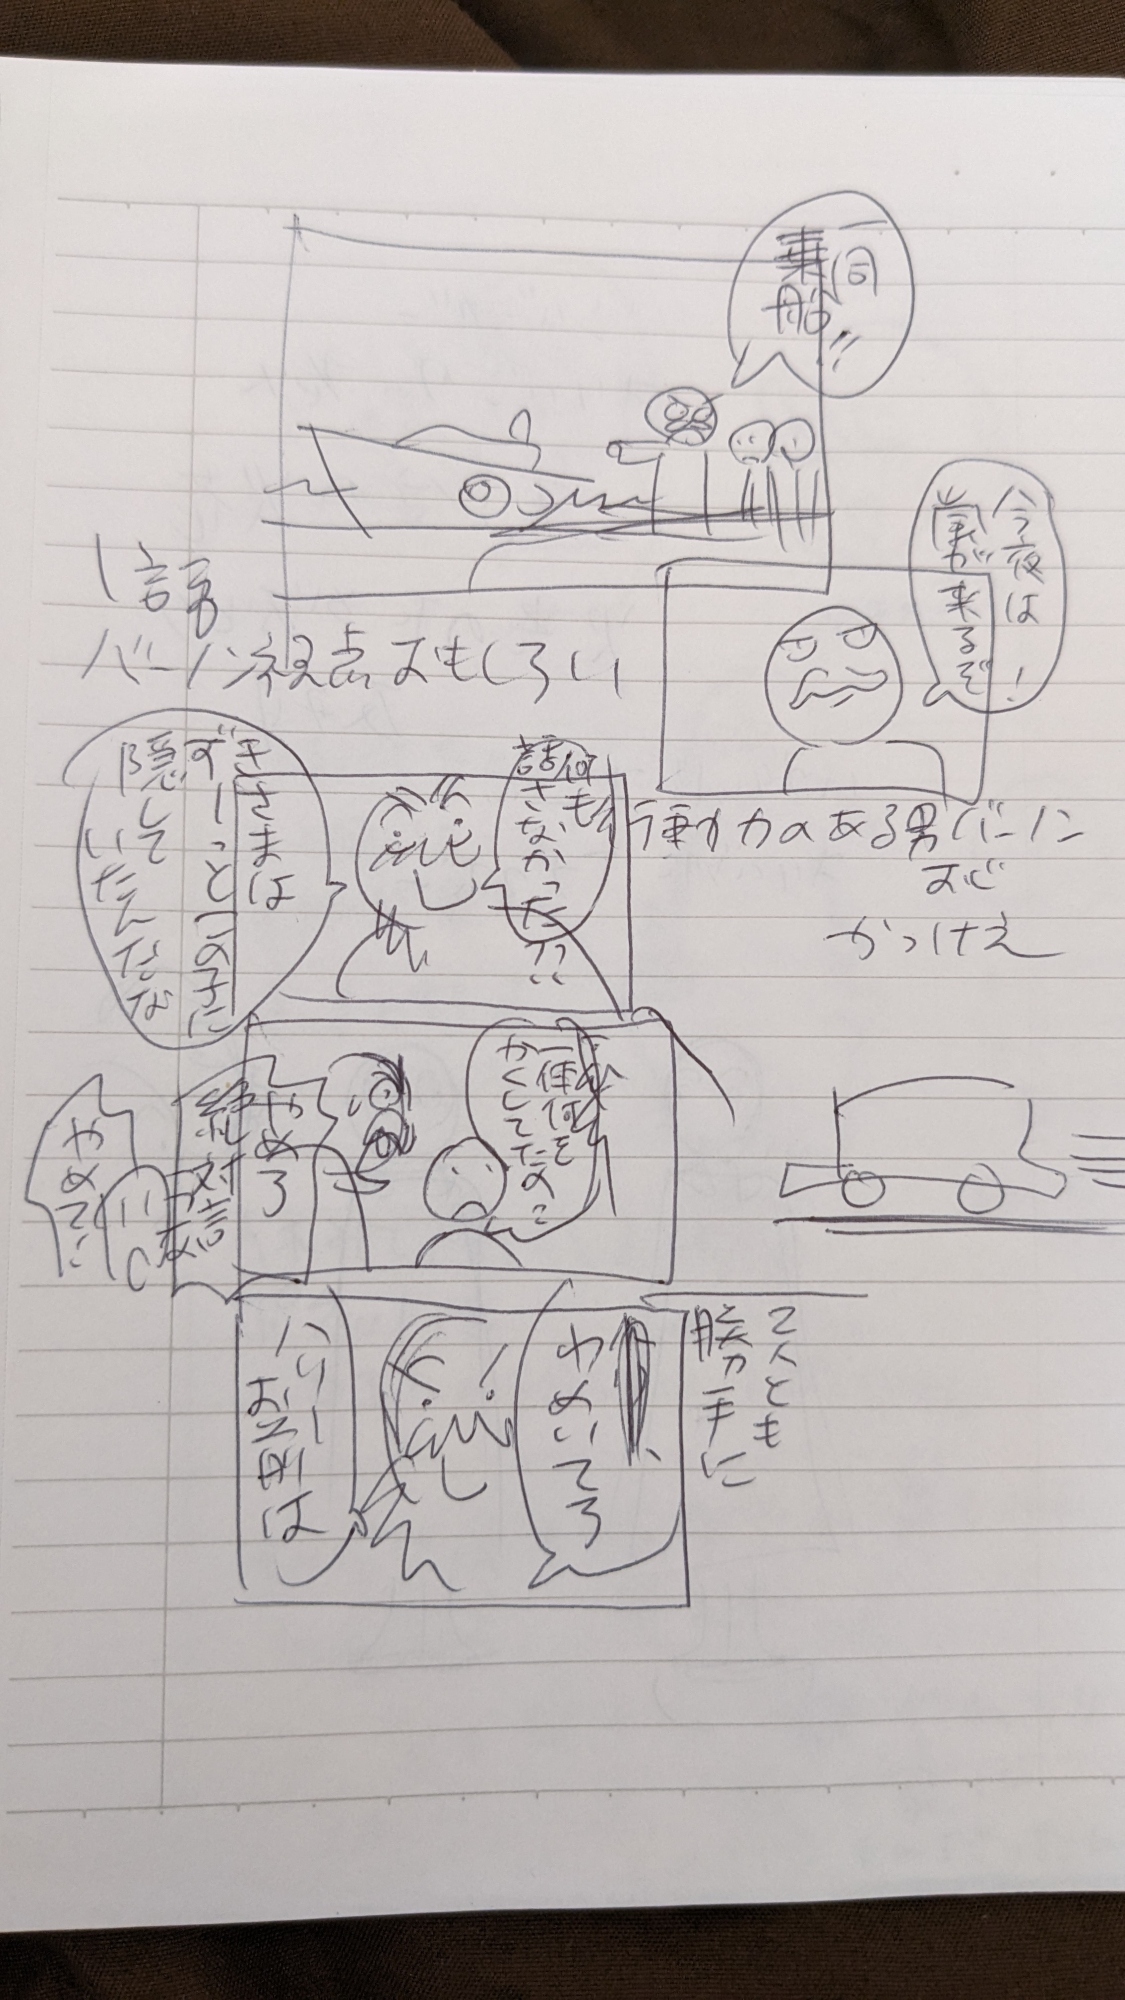 一同
乗船!!
今夜は
嵐が来るぞ!
1話
バーノン視点おもしろい
行動力のある男バーノン
おじ
かっけえ
何も
話さなかった??
きさまは
ずーっとこの子に
隠して
いたんだな
一体何を
かくしてたの?
やめろ
絶対言うな
やめて!
2人とも
勝手に
わめいてろ
ハリーお前は